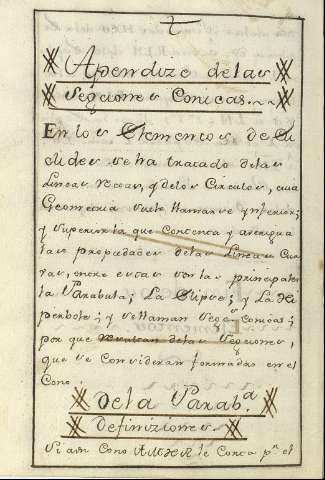 t
Apendize delas
Segciones Conicas.
En los Elementos de Eu
clides se ha tratado delas
Lineas rectas, y delos Circulos, cuia
Geometria suele llamarse ynferior;
y superior la que Contenta y averigua
las propiedades delas Lineas Cur
vas, entre estas son las principales
la Parabula; La Elipse; y La Hi
perbole; y se llaman Segciones Conicas;
por que resultan delas Segciones,
que se Consideran formadas en el
Cono.
Dela Parab.ª
Definiziones.
Si a un Cono se le Corta p.r el